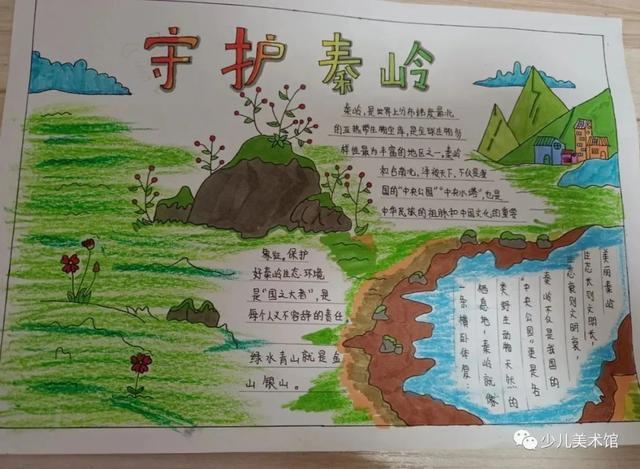 守护秦岭
秦岭,是世界上分布纬度最北
的亚热带生物宝库,是全球生物多
样性最为丰富的地区之一,秦岭
和合南北,泽被天下,不仅是我
国的"中央公园""中央水塔",也是
中华民族的祖脉和中国文化的重要
象征。保护
好秦岭生态环境
是"国之大者",是
每个人义不容辞的责任
绿水青山就是金
山银山。
美丽秦岭
生态兴则文明兴,
生态衰则文明衰
秦岭不仅是我国的
"中央公园"更是各
类野生动物天然的
栖息地,秦岭就像
一条横卧
少儿美术馆